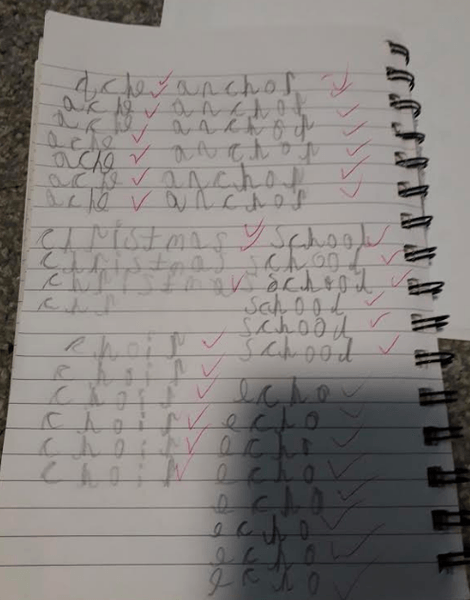 ache anchor
ache anchor
ache anchor
ache anchor
ache anchor
ache anchor
christmas school
christmas school
christmas school
chr school
school
choir school
choir
choir echo
choir echo
choir echo
choir echo
echo
echo
echo
echo